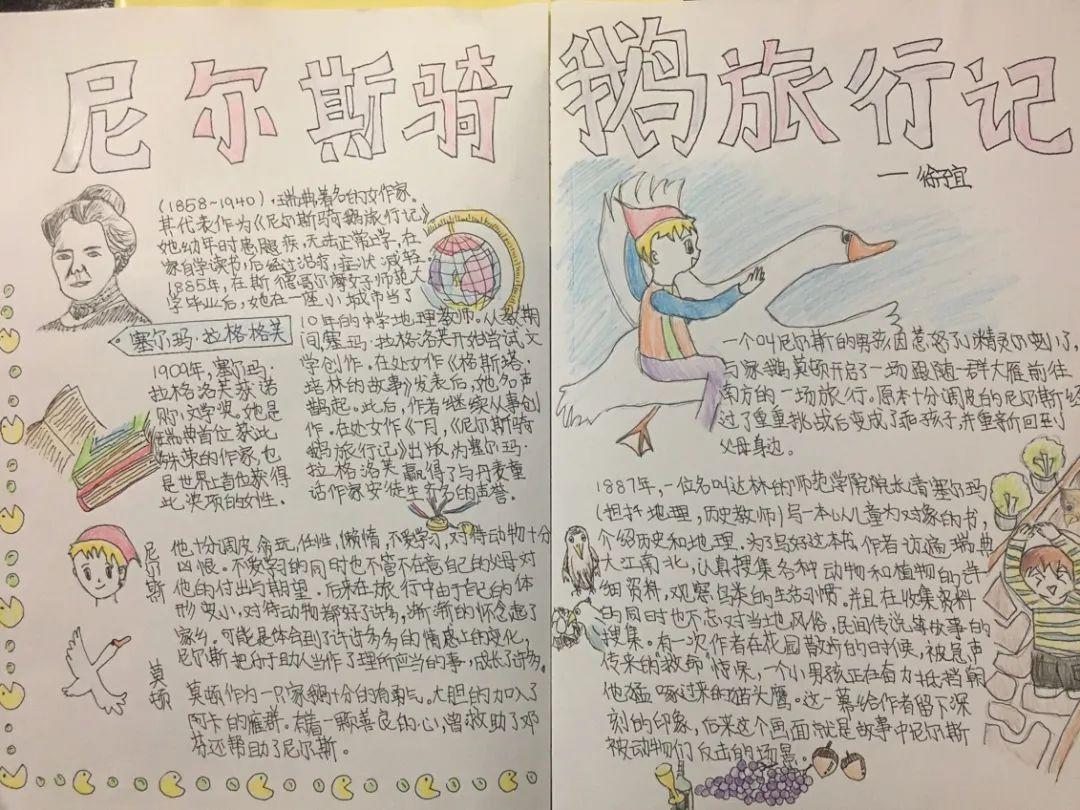 尼尔斯骑鹅旅行记
一徐宜
(1858~1940),瑞典著名的女作家。
其代表作为《尼尔斯骑鹅旅行记》
她幼年时患腿疾,无法正常上学,在
家自学读书,后经过治疗,症状减轻
1885年,在斯德哥尔摩女子师范大
学毕业后,她在一座小城市当了
10年的中学地理教师,从教期
间,塞玛·拉格洛芙开始尝试文
学创作。在处女作《格斯塔·
培林的故事》发表后,她名声
鹊起。此后,作者继续从事创
作。在处女作《一月,《尼尔斯骑
鹅旅行记》出版,为塞尔玛·
拉格洛芙赢得了与丹麦童
话作家安徒生齐名的声誉。
塞尔玛·拉格·格芙
1909年,塞尔玛·
拉格洛芙获诺
贝尔文学奖。她是
瑞典首位获此
殊荣的作家,也
是世界上首位获得
此奖项的女性。
尼尔斯
他十分调皮贪玩,任性,懒惰,不爱学习,对待动物十分
凶恨。不爱学习的同时也不管不在意自己的父母对
他的付出与期望。后来在旅行中由于自己的体
形变小,对待动物都好了许多,渐渐的怀念起了
家乡。可能是体会到了许许多多的情感上的变化,
尼尔斯把乐于助人当作了理所应当的事,成长了许多。
莫顿
莫顿作为一只家鹅十分的有勇气。大胆的加入了
阿卡的雁群。有着一颗善良的心,曾救助了邓
芬还帮助了尼尔斯。
一个叫尼尔斯的男孩因惹怒小精灵而变小了,
与家鹅莫顿开启了一场跟随一群大雁前往
南方的一场旅行。原本十分调皮的尼尔斯经
过了重重挑战后变成了乖孩子,并重新回到
父母身边。
1887年,一位名叫达林的师范学院院长请塞尔玛
(担任地理,历史教师)写一本以儿童为对象的书,
介绍历史和地理。为了写好这本书,作者访遍瑞典
大江南北,认真搜集各种动物和植物的详
细资料,观察鸟类的生活习惯。并且在收集资料
的同时也不忘对当地风俗,民间传说等故事的
搜集。有一次作者在花园散步的时候,被急声
传来的救命惊呆,一个小男孩正在奋力抵挡朝
他猛啄过来的猫头鹰。这一幕给作者留下深
刻的印象,后来这个画面就是故事中尼尔斯
被动物们反击的场景。